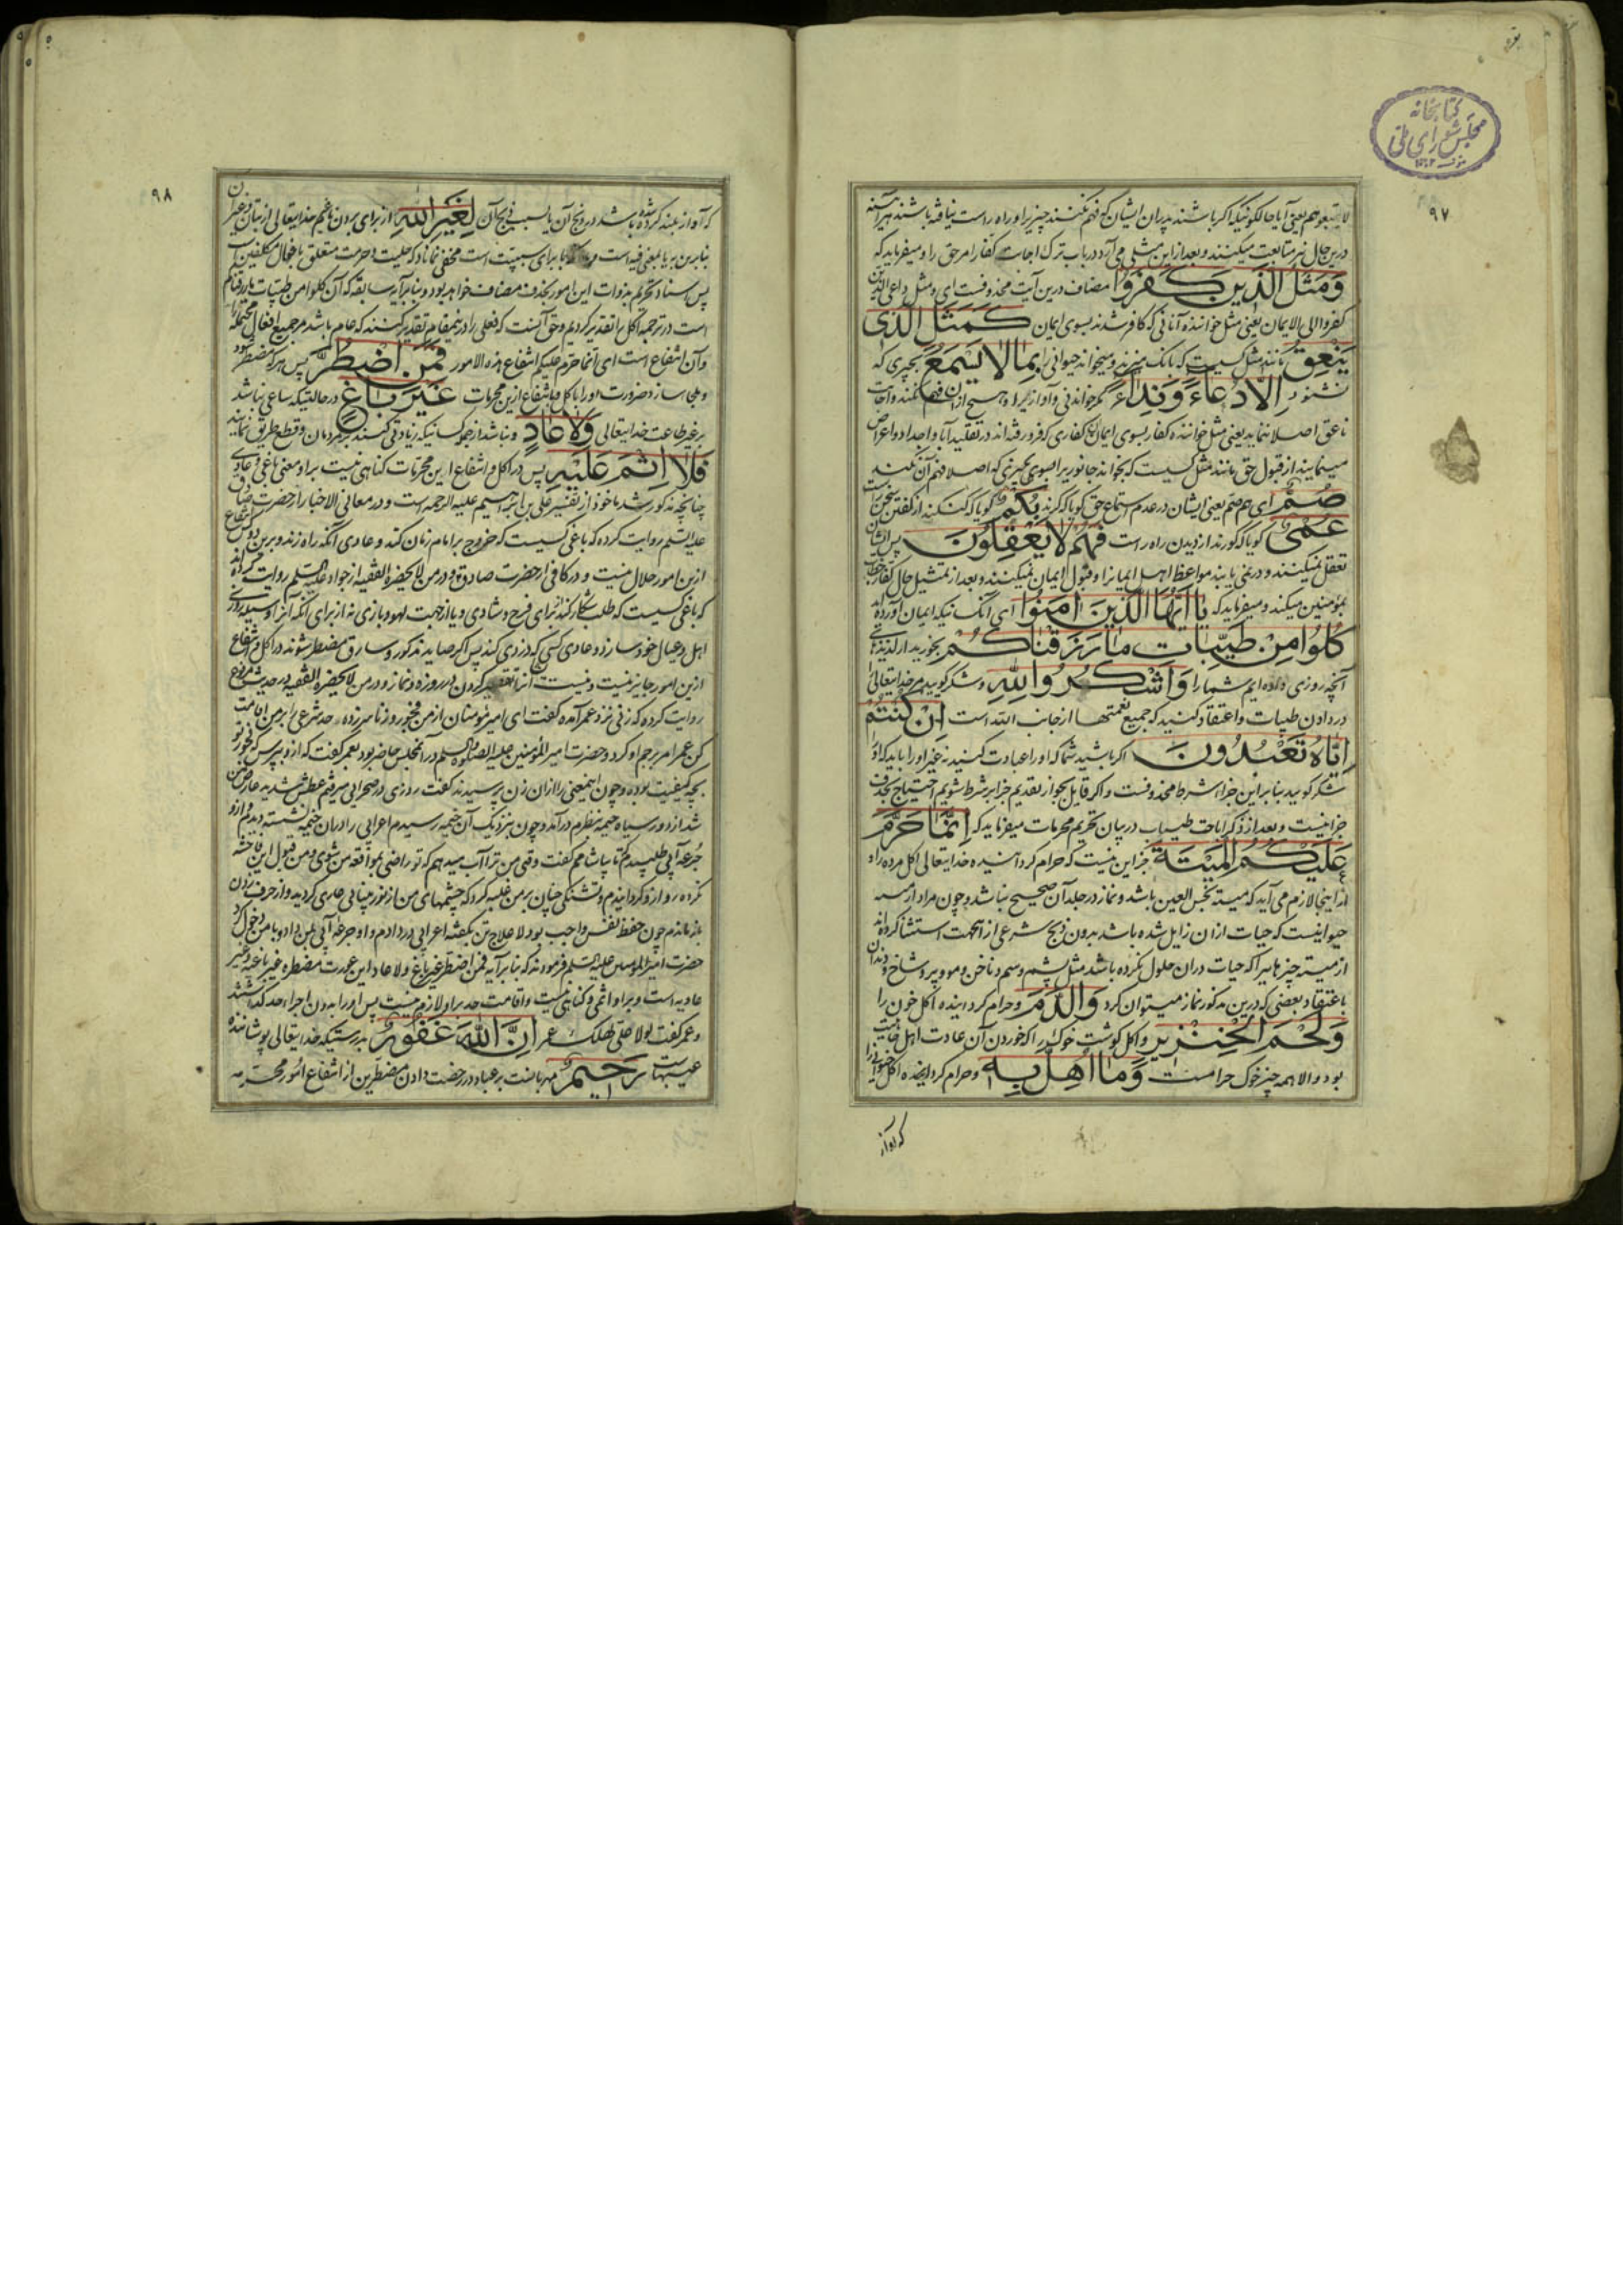 کتابخانه
مجلس شورای ملی
۹۷
لاتبعوهم یعنی آیا حالکونیکه اکر باشند پدران ایشان که فهم نکنند چیزیرا و راه راست نیافته باشند هرآینه
درین حال نیز متابعت میکنند و بعد از این مثلی می آرد در باب ترک اجابت کفار امر حق را و میفرماید که
وَمَثَلُ الَّذینَ کَفَرُوا مضاف درین آیت محذوفست ای و مثل داعی الذین
کفروا الی الایمان یعنی مثل خواننده آنانی که کافر شدند بسوی ایمان کَمَثَلِ الَّذی
یَنْعِقُ مانند مثل کسیست که بانک میزند و میخواند حیوانی را بِمَا لا یَسْمَعُ بچیزی که
نشنود اِلّا دُعاءً وَنِداءً مکر خواندنی و آوازیرا و هیچ از آن فهم نکند و اجابت
ناعق اصلا ننماید یعنی مثل خواننده کفار بسوی ایمان کفاری که فرو رفته اند در تقلید آبا و اجداد و اعراض
مینمایند از قبول حق مانند مثل کسیست که بخواند جانوریرا بسوی چیزی که اصلا فهم آن نکند
صُمٌّ ای هم صم یعنی ایشان در عدم استماع حق کویا که کرند بُکْمٌ کویا که کنکند از کفتن سخن راست
عُمْیٌ کویا که کورند از دیدن راه راست فَهُمْ لا یَعْقِلُونَ پس ایشان
تعقل نمیکنند و در نمی یابند مواعظ اهل ایمانرا و قبول ایمان نمیکنند و بعد از تمثیل حال کفار خطاب
بمؤمنین میکند و میفرماید که یا اَیُّهَا الَّذینَ امَنُوا ای آنکسانیکه ایمان آورده اند
کُلُوا مِنْ طَیِّباتِ ما رَزَقْناکُمْ بخورید از لذیذهای
آنچه روزی داده ایم شما را وَاشْکُرُوا لِلّهِ و شکر کویید مر خدایتعالی را
در دادن طیبات و اعتقاد کنید که جمیع نعمتها از جانب الله است اِنْ کُنْتُمْ
اِیّاهُ تَعْبُدُونَ اکر باشید شما که او را عبادت کنید نه غیر او را باید که او را
شکر کویید بنا بر این جزاء شرط محذوفست و اکر قایل بجواز تقدیم جزا بر شرط شویم احتیاج بحذف
جزا نیست و بعد از ذکر اباحت طیبات در بیان تحریم محرمات میفرماید که اِنَّما حَرَّمَ
عَلَیْکُمُ الْمَیْتَةَ جز این نیست که حرام کردانیده خدایتعالی اکل مرده را و
از اینجا لازم می آید که میته نجس العین باشد و نماز در جلد آن صحیح نباشد و چون مراد از میته
حیوانیست که حیات از ان زایل شده باشد بدون ذبح شرعی از آنجهت استثنا کرده اند
از میته چیزهاییرا که حیات دران حلول نکرده باشد مثل پشم و سم و ناخن و مو و پر و شاخ و دندان
باعتقاد بعضی که درین مذکور نماز میتوان کرد وَالدَّمَ و حرام کردانیده اکل خون را
وَلَحْمَ الْخِنْزیرِ و اکل کوشت خوک را که خوردن آن عادت اهل جاهلیت
بود و الا همه چیز خوک حرامست وَما اُهِلَّ بِه و حرام کردانیده اکل حیوانی را
که آواز
۹۸
که آواز بلند کرده شده باشد در ذبح آن یا بسبب ذبح آن لِغَیْرِ اللهِ از برای بردن نام غیر خدایتعالی از بتان و غیر آن
پس اسناد تحریم بذوات این امور بحذف مضاف خواهد بود و بنا بر آیه سابقه که آن کلوا من طیبات ما رزقناکم
است در ترجمه اکل را تقدیر کردیم و حق آنست که فعلی را درینمقام تقدیر کنند که عام باشد مر جمیع افعال محتمله
و آن انتفاع است ای انما حرم علیکم انتفاع هذه الامور فَمَنِ اضْطُرَّ پس هر که مضطر شود
و ملجا سازد ضرورت او را باکل یا بانتفاع ازین محرمات غَیْرَ باغٍ درحالتیکه ساعی نباشد
بر غیر طاعت خدایتعالی وَلا عادٍ و نباشد از جمله کسانیکه زیادتی کنند بر مردمان و قطع طریق نمایند
فَلا اِثْمَ عَلَیْهِ پس در اکل و انتفاع ازین محرمات کناهی نیست بر او و معنی باغی و عادی
چنانچه مذکور شد ماخوذ از تفسیر علی بن ابراهیم علیه الرحمه است و در معانی الاخبار از حضرت صادق
علیه السلم روایت کرده که باغی کسیست که خروج بر امام زمان کند و عادی آنکه راه زند و برین دو کس انتفاع
ازین امور حلال نیست و در کافی از حضرت صادق و در من لایحضره الفقیه از جواد علیه السلم روایت کرده اند
که باغی کسیست که طلب شکار کند برای فرح و شادی و یا از جهت لهو و بازی نه از برای آنکه آنرا وسیله روزی
اهل و عیال خود سازد و عادی کسی که دزدی کند پس اکر صاید مذکور و سارق مضطر شوند در اکل و انتفاع
ازین امور جایز نیست و نیست آنرا تقصیر کردن در روزه و نماز و در من لایحضره الفقیه در حدیث مرفوع
روایت کرده که زنی نزد عمر آمده کفت ای امیر مؤمنان از من فجور و زنا سر زده حد شرعی را بر من اقامت
کن عمر امر برجم او کرد و حضرت امیر المؤمنین علیه الصلوه و السلم در آنمجلس حاضر بود بعمر کفت که از و بپرس که فجور تو
بچه کیفیت بوده و چون اینمعنی را از ان زن پرسیدند کفت روزی در صحرایی میرفتم عطش شدید عارض من
شد از دور سیاه خیمه بنظرم درآمد و چون بنزدیک آن خیمه رسیدم اعرابی را دران خیمه نشسته دیدم از و
جرعه آبی طلبیدم تا بیاشامم کفت وقتی من ترا آب میدهم که تو راضی بمواقعه من شوی و من قبول این فاحشه
نکرده رو از و کردانیدم و تشنکی چنان بر من غلبه کرد که چشمهای من از نور بینایی عاری کردید و از حرف زدن
باز ماندم چون حفظ نفس واجب بود لاعلاج تن بکفته اعرابی در دادم و او جرعه آبی بمن داد و با من دخول کرد
حضرت امیر المؤمنین علیه السلم فرمودند که بنا بر آیه فمن اضطر غیر باغ و لا عاد این عورت مضطره غیر باغیه و غیر
عادیه است و بر او اثمی و کناهی نیست و اقامت حد بر او لازم نیست پس او را بدون اجراء حد کذاشتند
و عمر کفت لولا علی لهلک عمر اِنَّ اللهَ غَفُورٌ بدرستیکه خدایتعالی پوشاننده
عیبهاست رَحیمٌ مهربانست بر عباد در رخصت دادن مضطرین از انتفاع امور محرمه